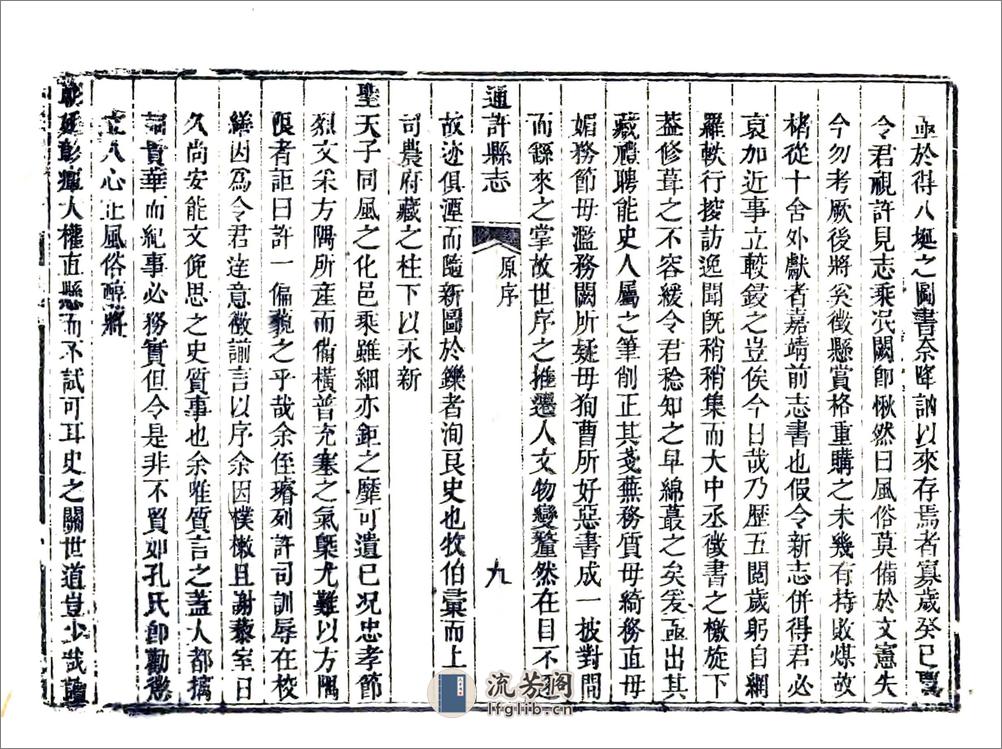 亟於得八埏之圖書奈時訥以來存焉者寡歲癸巳
令君視許見志乘泯闕卽愀然曰風俗莫備於文憲失
今勿考厥後將奚徵懸賞格重購之未幾有持敗煤故
楮從十舍外獻者嘉靖前志書也假令新志併得君必
裒加近事立較鋟之豈俟今日哉乃歷五閱歲躬自網
羅軼行接訪逸聞旣稍稍集而大中丞徵書之檄旋下
葢修葺之不容緩令君稔知之早綿蕞之矣爰亟出其
藏禮聘能史人屬之筆削正其蕪務質毋綺務直毋
媚務節毋濫務闕所疑毋狥曹所好惡書成一披對間
而繇來之掌故世序之推遷人文物變釐然在目不
通許縣志
原序
九
故迹俱湮而隨新圖於鑠者洵良史也牧伯彙而上
司農府藏之柱下以永新
聖天子同風之化邑乘雖細亦鉅之靡可遺巳况忠孝節
烈文采方隅所產而備橫普充塞之氣槩尤難以方隅
限者詎曰許一偏藐之乎哉余侄璿列許司訓辱在校
繕因爲令君達意徵諭言以序余因樸樕且謝藜室日
久尚安能文俛思之史質事也余唯質言之蓋人都摛
詞貴華而紀事必務實但令是非不貿如孔氏卽勸懲
立人心正風俗醇蔣
朝廷彰癉大權直懸而不試可耳史之關世道豈少哉
流芳阁
lfglib.cn